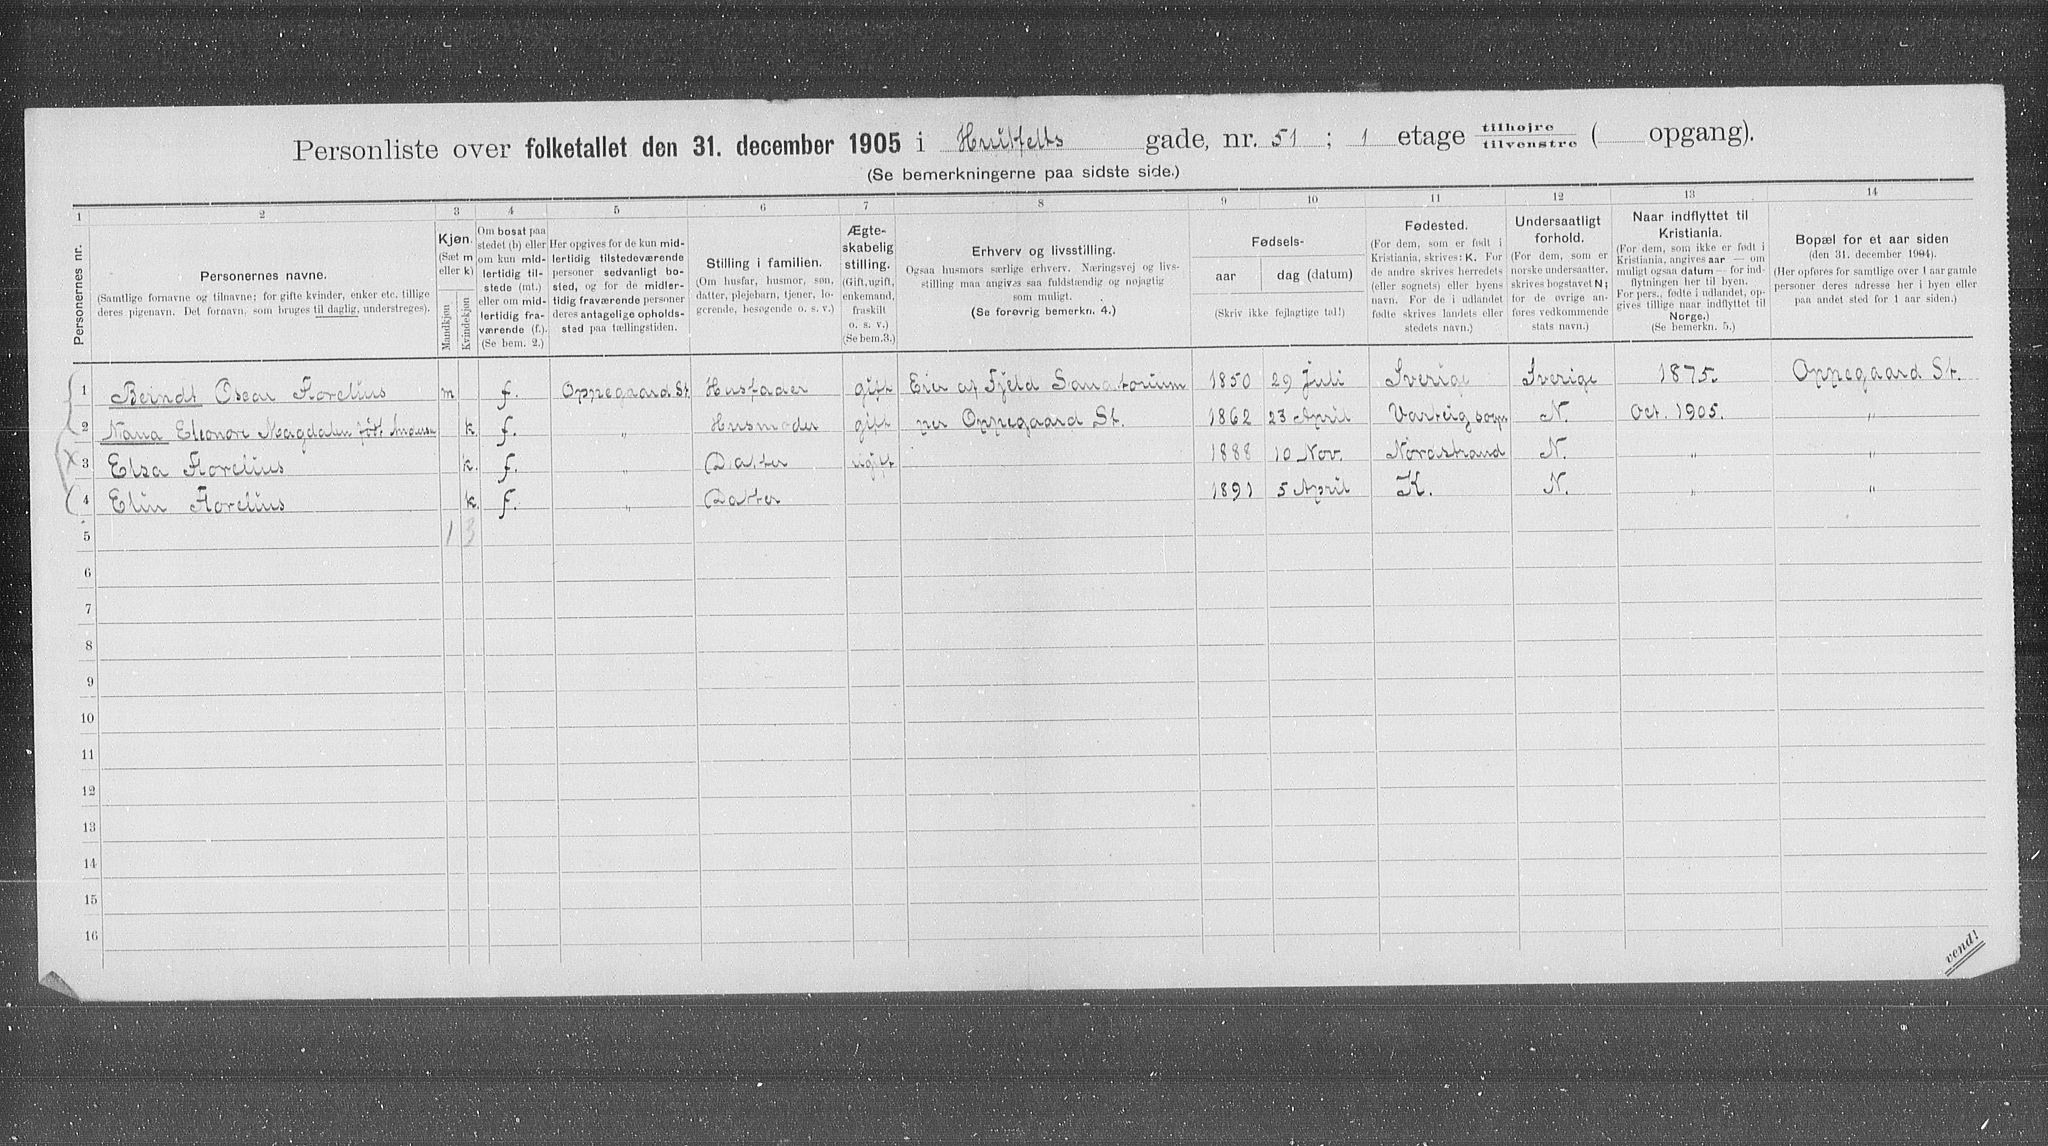 Personliste over folketallet den 31. december 1905 i Huitfelts gade, nr. 51 ; 1 etage tilhøjre tilvenstre ( opgang).
(Se bemerkningerne paa sidste side.)
1 2 3 4 5 6 7 8 9 10 11 12 13 14
Personernes nr.
Personernes navne.
(Samtlige fornavne og tilnavne; for gifte kvinder, enker etc. tillige
deres pigenavn. Det fornavn, som bruges til daglig, understreges).
Kjøn.
(Sæt m
eller k)
Mandkjøn
Kvindekjøn
Om bosat paa
stedet (b) eller
om kun mid-
lertidig til-
stede (mt.)
eller om mid-
lertidig fra-
værende (f.).
(Se bem. 2.)
Her opgives for de kun mid-
lertidig tilstedeværende
personer sedvanligt bo-
sted, og for de midler-
tidig fraværende personer
deres antagelige opholds-
sted paa tællingstiden.
Stilling i familien.
(Om husfar, husmor, søn,
datter, plejebarn, tjener, lo-
gerende, besøgende o. s. v.)
Ægte-
skabelig
stilling.
(Gift, ugift,
enkemand,
fraskilt
o. s. v.)
(Se bem.3.)
Erhverv og livsstilling.
Ogsaa husmors særlige erhverv. Næringsvej og livs-
stilling maa angives saa fuldstændig og nøjagtig
som muligt.
(Se forøvrig bemerkn. 4.)
Fødsels-
aar
dag (datum)
(Skriv ikke fejlagtige tal!)
Fødested.
(For dem, som er født i
Kristiania, skrives: K. For
de andre skrives herredets
(eller sognets) eller byens
navn. For de i udlandet
fødte skrives landets eller
stedets navn.)
Undersaatligt
forhold.
(For dem, som er
norske undersaatter,
skrives bogstavet N;
for de øvrige an-
føres vedkommende
stats navn.)
Naar indflyttet til
Kristiania.
(For dem, som ikke er født i
Kristiania, angives aar — om
muligt ogsaa datum — for ind-
flytningen her til byen.
For pers., fødte i udlandet, op-
gives tillige naar indflyttet til
Norge.)
(Se bemerkn. 5.)
Bopæl for et aar siden
(den 31. december 1904).
(Her opføres for samtlige over 1 aar gamle
personer deres adresse her i byen eller
paa andet sted for 1 aar siden.)
1 Beindt Oscar Florelius m f. Oppegaard St. Husfader gift Eier af Fjeld Sanatorium 1850 29 Juli Sverige Sverige 1875. Oppegaard St.
2 Nana Eleonore Magdalen født k. f. " Husmoder gift per Oppegaard St. 1862 23 April Varteig sogn N. Oct. 1905. "
3 Elsa Florelius k. f. " Datter ugift 1888 10 Nov. Nordstrand N. " "
4 Elin Florelius k. f. " Datter 1891 5 April K. N. " "
5 1 3
6
7
8
9
10
11
12
13
14
15
16
vend!